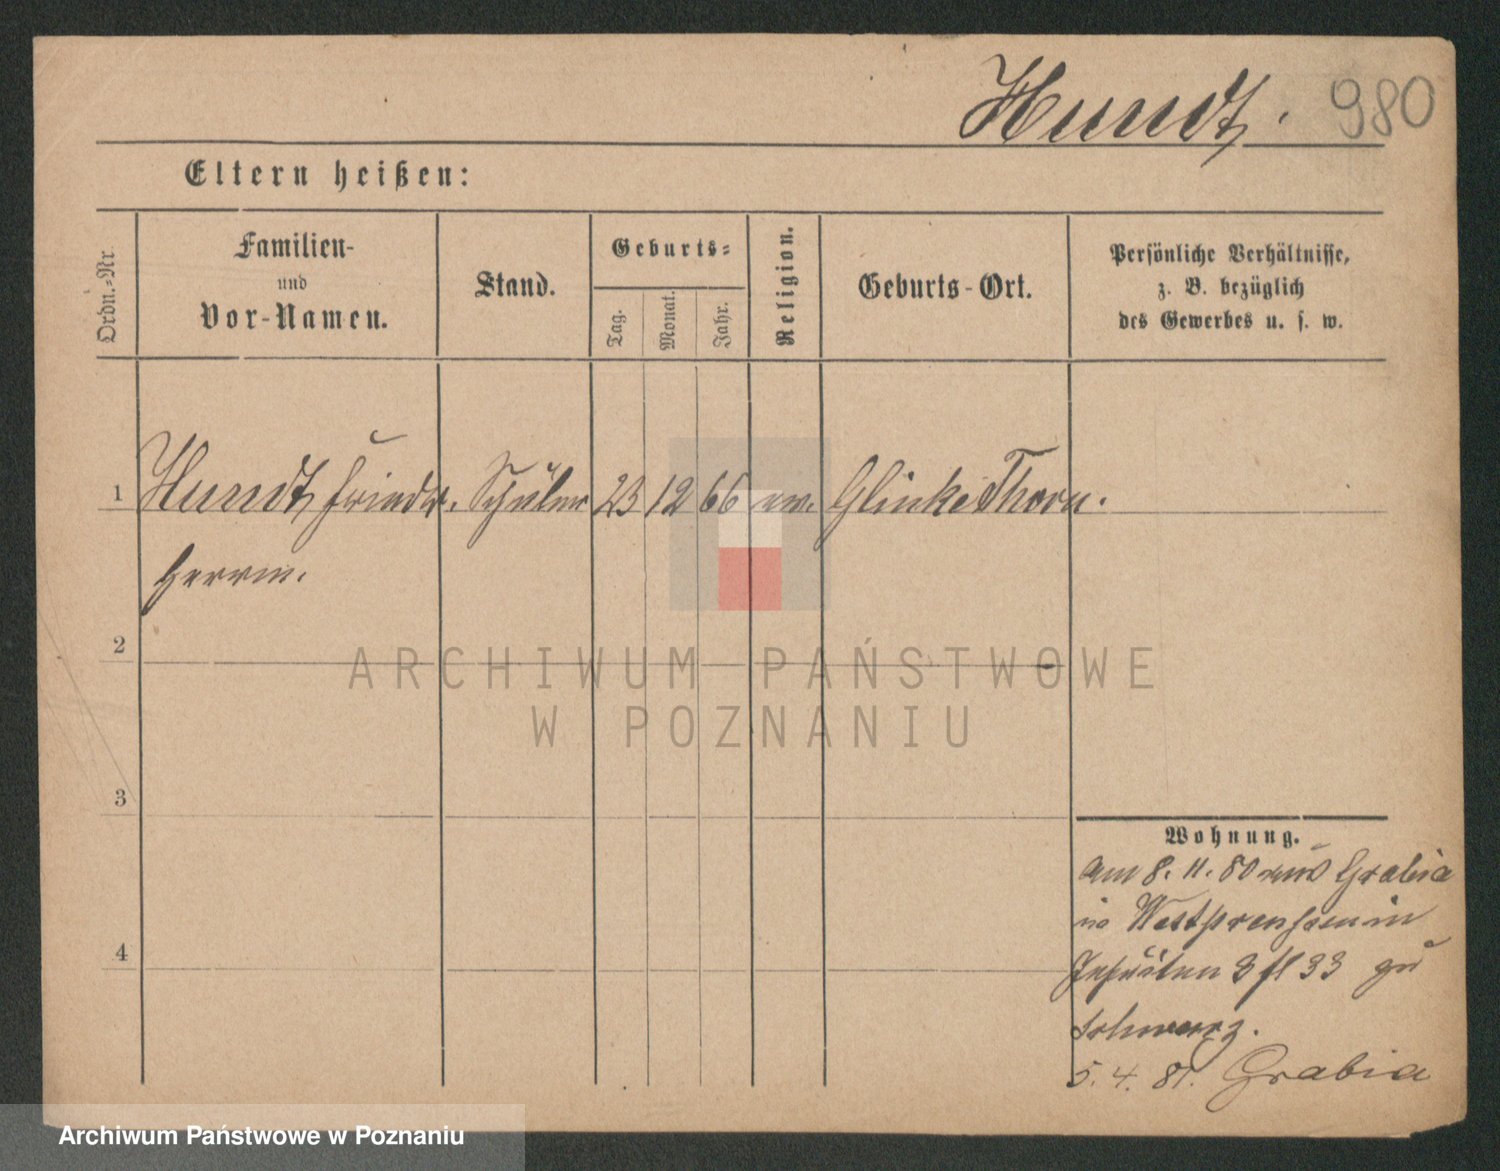 Hundt. 980
Eltern heißen:
Ordn.-Nr.
Familien-
und
Vor-Namen.
Stand.
Geburts-
Tag.
Monat.
Jahr.
Religion.
Geburts-Ort.
Persönliche Verhältnisse,
z. B. bezüglich
des Gewerbes u. s. w.
1 Hundt Friedr. Schüler 23 12 66 ev. Glinke Thorn.
Herrm.
2
3
4
Wohnung.
Am 8. 11. 80 aus Grabia
in Westpreussen in
Jesuiten 3 fl 33 zu
Schwarz.
5. 4. 81. Grabia
ARCHIWUM PAŃSTWOWE
W POZNANIU
Archiwum Państwowe w Poznaniu